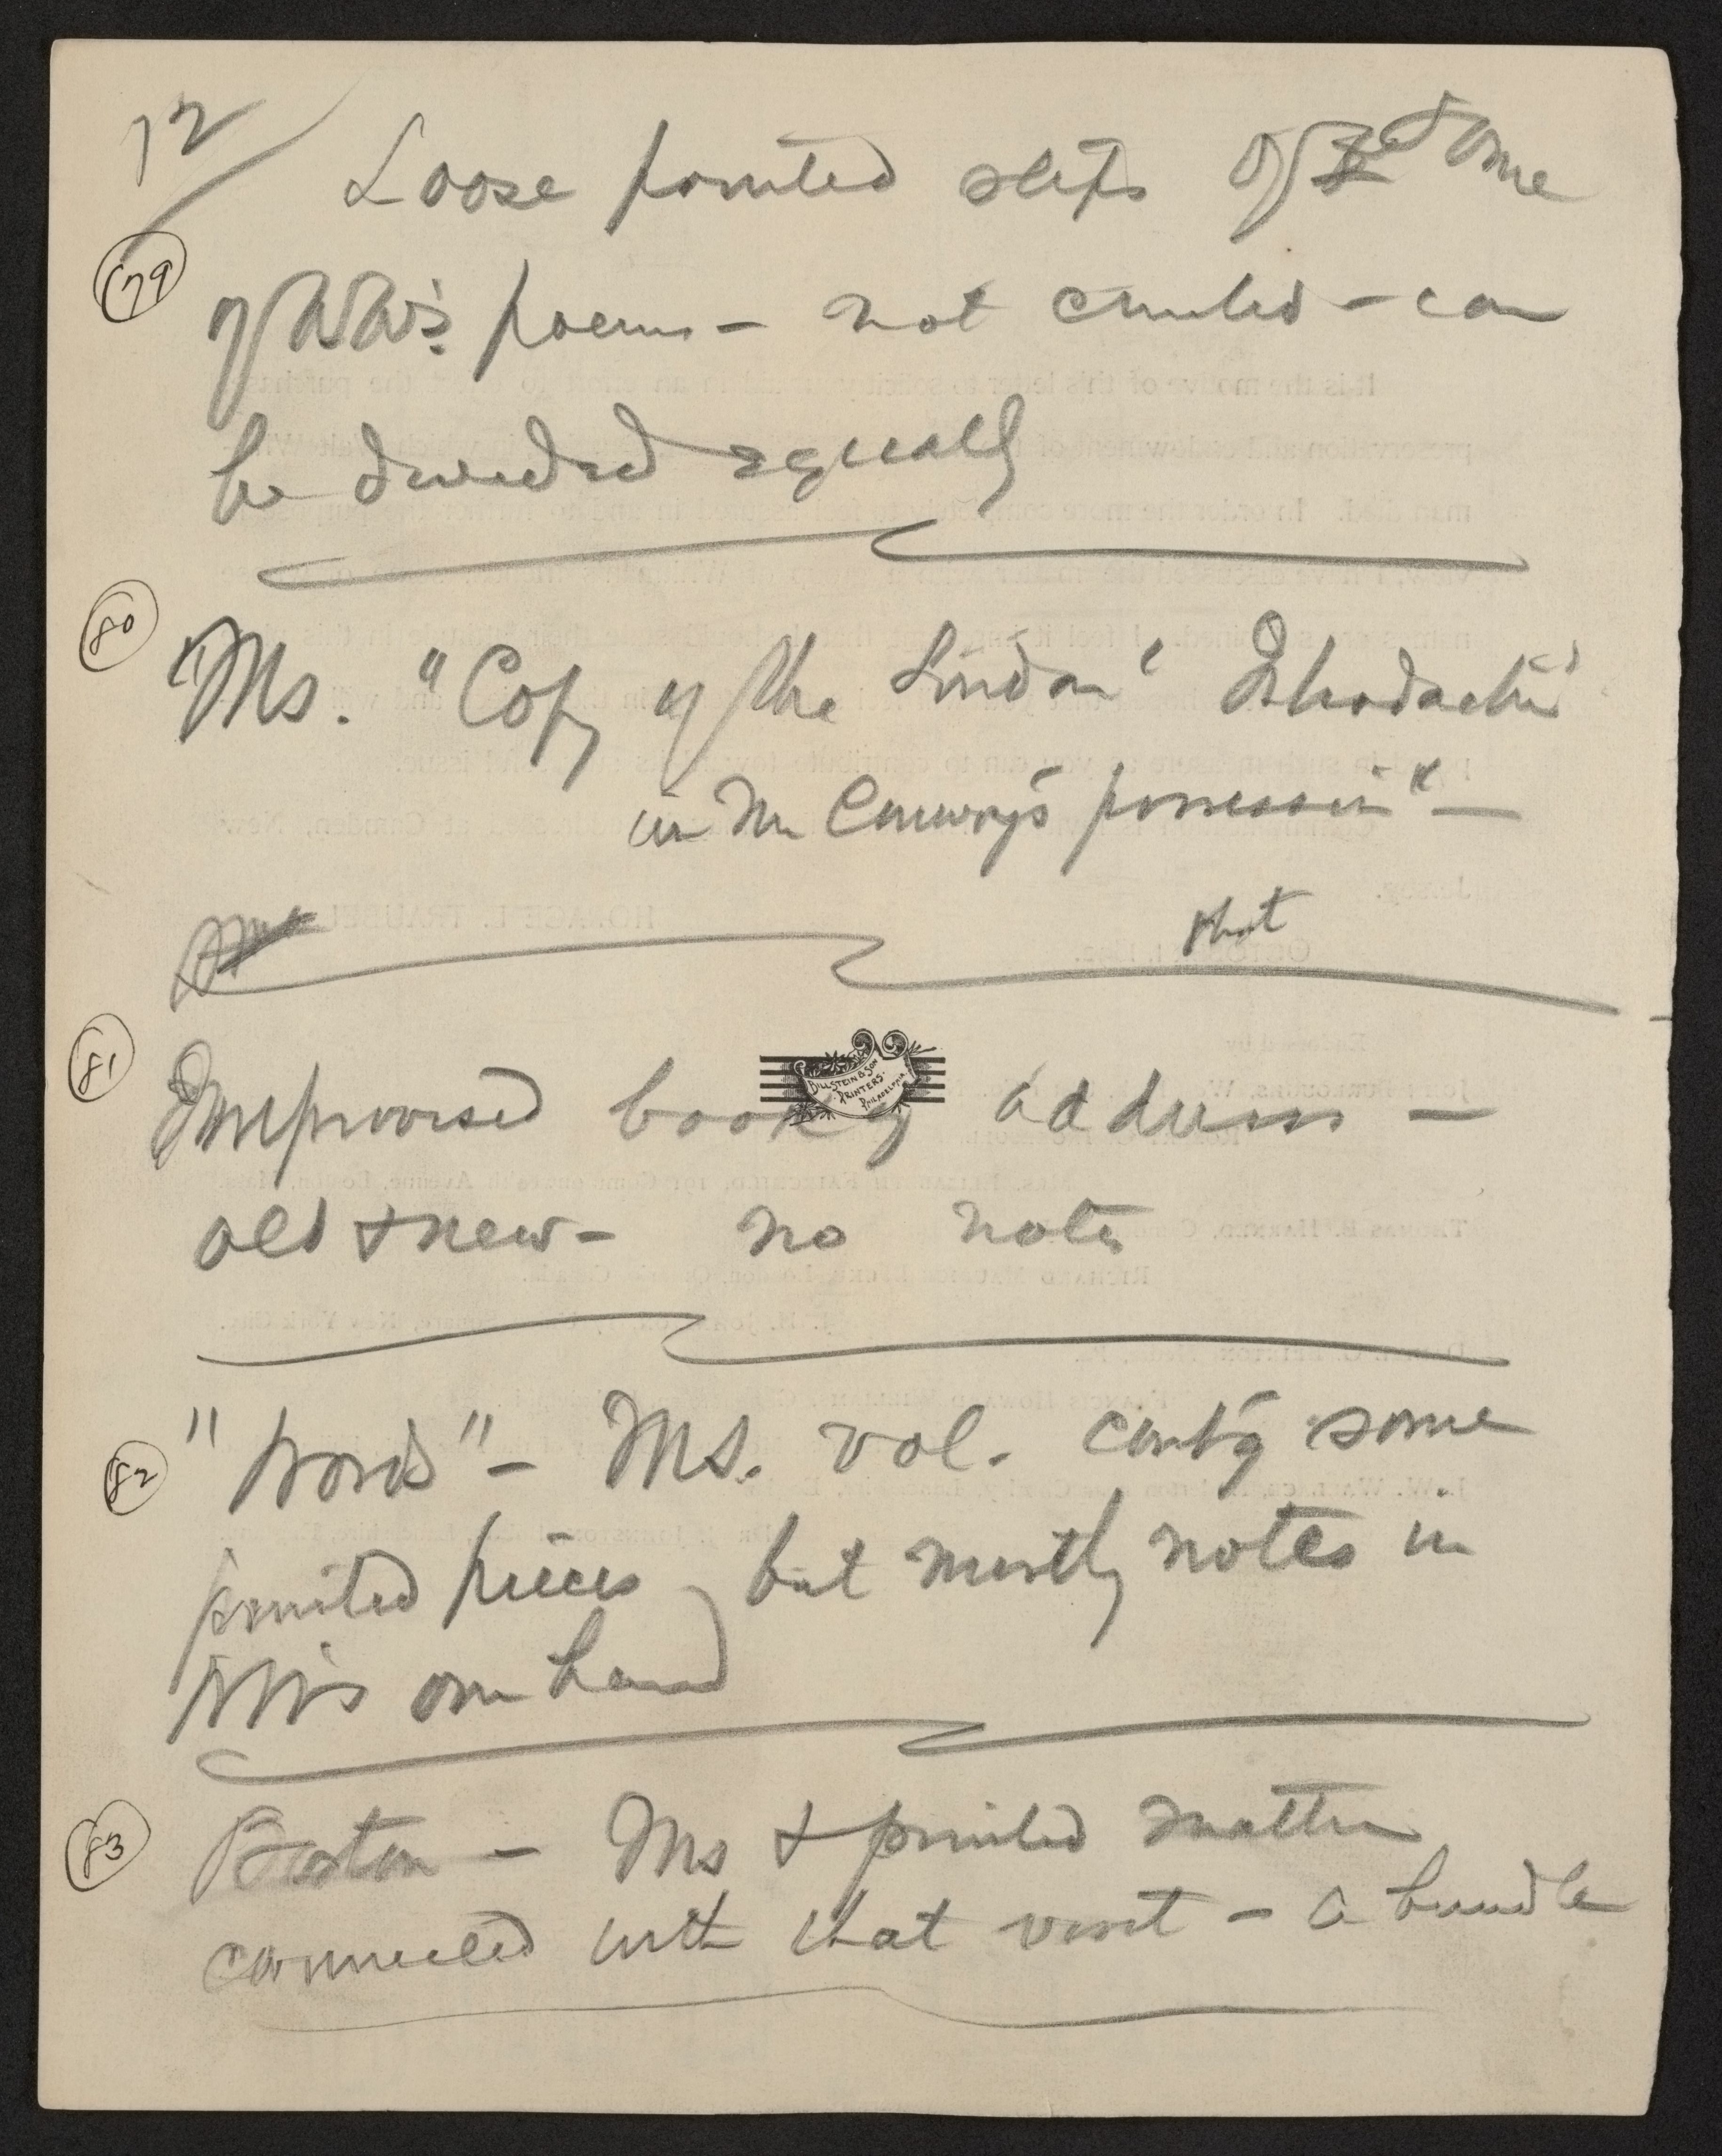 12
Loose printed slips of some
(79)
of WW's poems – not counted – can
be divided equally
(80)
Ms. "Copy of the London
in Mr Conway's possession" –
that
(81)
Improvised book of address –
BILLSTEIN & SON
PRINTERS.
PHILADELPHIA
old & new – no notes
(82)
"Words" – Ms. vol. cont'g some
printed pieces, but mostly notes in
WW's own hand
(83)
Boston – Ms & printed matter
connected with that visit – a bundle